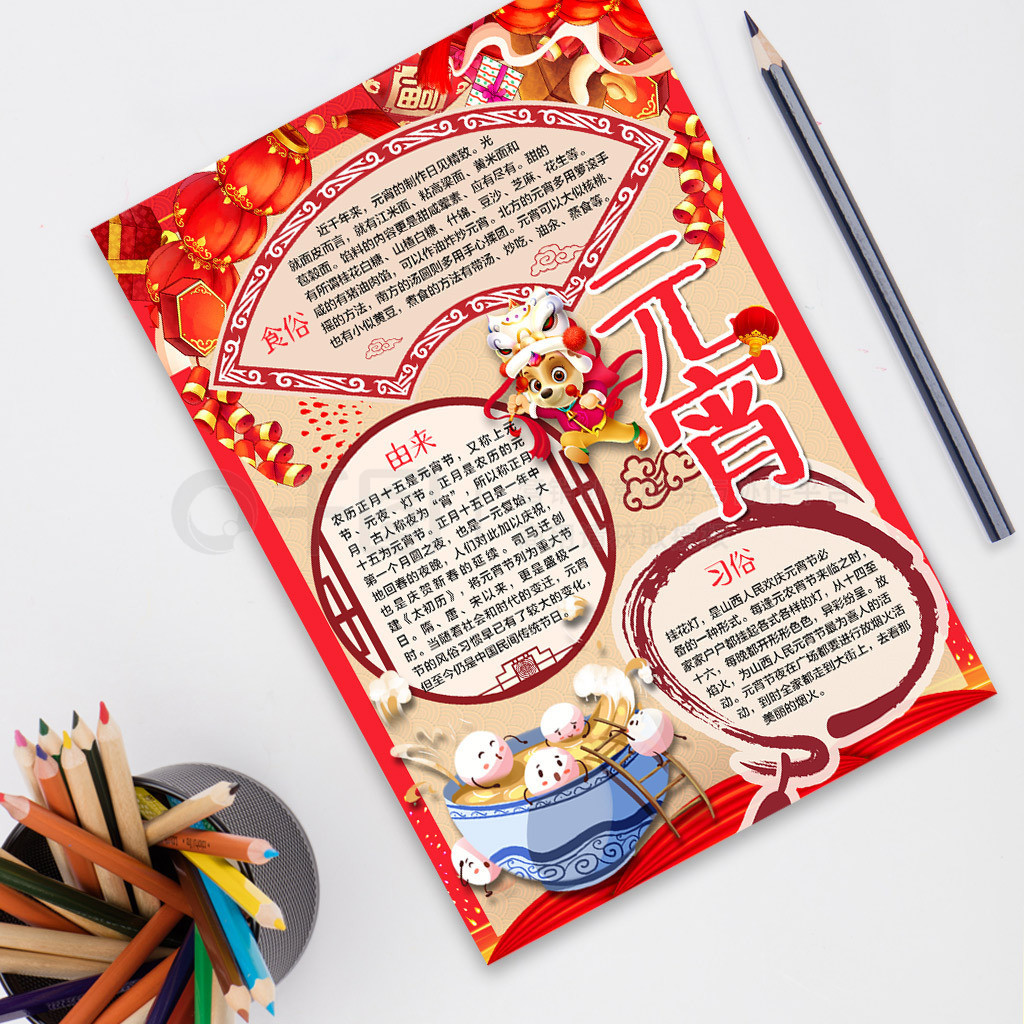 福
元宵
近千年来，元宵的制作日见精致。光
就面皮而言，就有江米面、粘高梁面、黄米面和
苞穀面。馅料的内容更是甜咸荤素、应有尽有。甜的
有所谓桂花白糖、山楂白糖、什锦、豆沙、芝麻、花生等。
咸的有猪油肉馅，可以作油炸炒元宵。北方的元宵多用箩滚手
摇的方法，南方的汤圆则多用手心揉团。元宵可以大似核桃、
也有小似黄豆，煮食的方法有带汤、炒吃、油汆、蒸食等。
食俗
由来
农历正月十五是元宵节，又称上元
节、元夜、灯节。正月是农历的元
月，古人称夜为“宵”，所以称正月
十五为元宵节。正月十五日是一年中
第一个月圆之夜，也是一元复始，大
地回春的夜晚，人们对此加以庆祝，
也是庆贺新春的延续。司马迁创
建《太初历》，将元宵节列为重大节
日。隋、唐、宋以来，更是盛极一
时。当随着社会和时代的变迁，元宵
节的风俗习惯早已有了较大的变化，
但至今仍是中国民间传统节日。
习俗
挂花灯，是山西人民欢庆元宵节必
各的一种形式。每逢元农宵节来临之时，
家家户户都挂起各式各样的灯，从十四至
十六，每晚都开形形色色，异彩纷呈。放
焰火，为山西人民元宵节最为喜人的活
动。元宵节夜在广场都要进行放烟火活
动，到时全家都走到大街上，去看那
美丽的烟火。